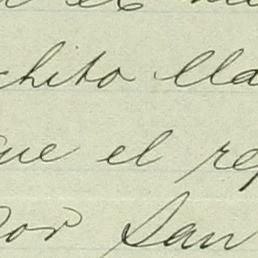 chito lla
que el rep
por San